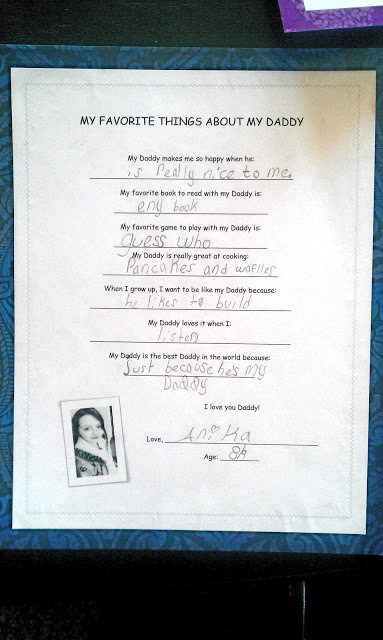 MY FAVORITE THINGS ABOUT MY DADDY
My Daddy makes me so happy when he:
is really nice to me.
My favorite book to read with my Daddy is:
eny book
My favorite game to play with my Daddy is:
guess who
My Daddy is really great at cooking:
Pancakes and waffles
When I grow up, I want to be like my Daddy because:
he likes to build
My Daddy loves it when I:
listen
My Daddy is the best Daddy in the world because:
Just because he's my
Daddy
I love you Daddy!
Love, Anika
Age: